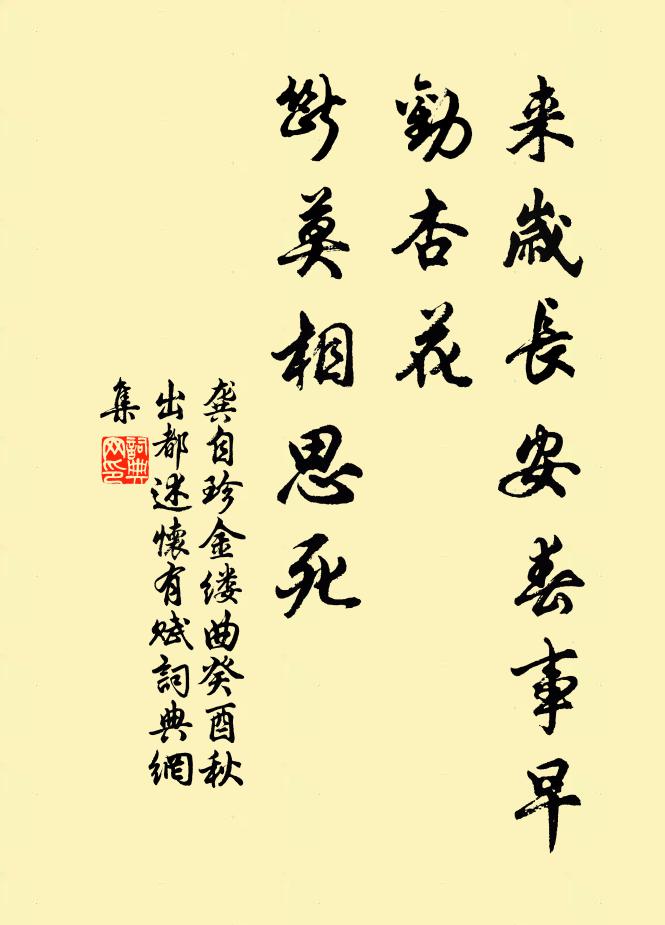 来歲長安春事早
勸杏花
斷莫相思死
龚自珍金缕曲癸酉秋
出都述懷有赋詞典網
集
詞典
网印